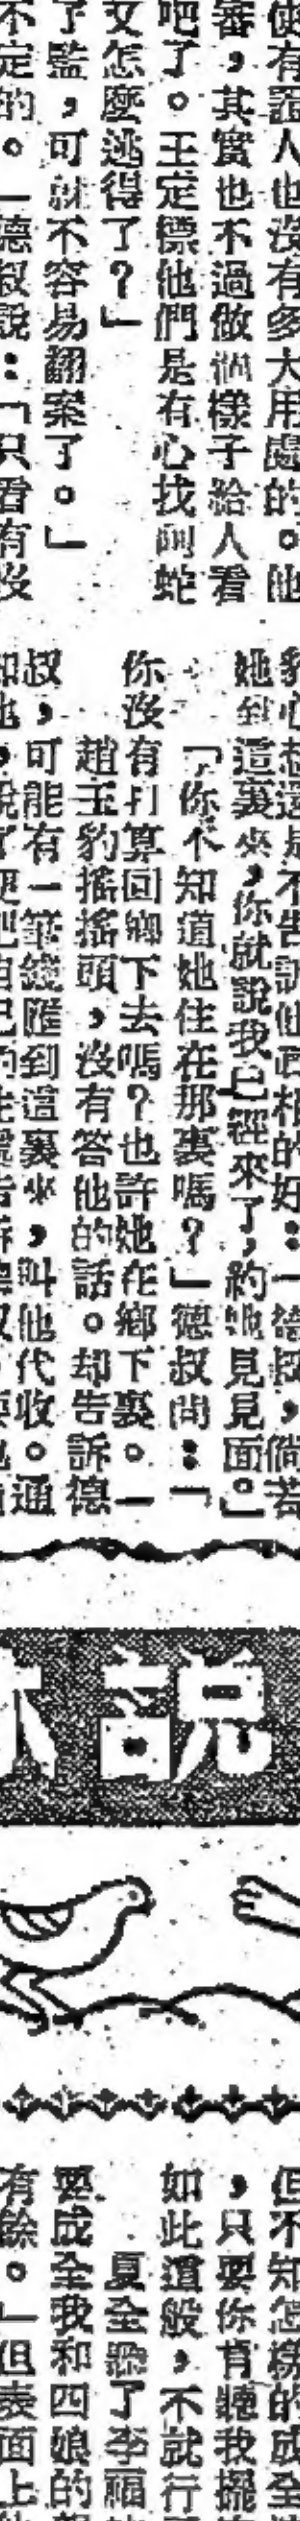 使有證人也沒有多大用處的。他
審，其實也不過做個樣子給人看
吧了。王定標他們是有心找倒蛇
女怎麼逃得了？」
了監，可就不容易翻案了。」
不定的。」德叔說：「只看有沒
豹心想還是不告訴他
她到這裏來，你就說我已經來了，約她見見面。」
「你不知道她住在那裏嗎？」德叔問：「
你沒有打算回鄉下去嗎？也許她在鄉下裏。」
趙玉豹搖搖頭，沒有答他的話。却告訴德
叔，可能有一筆錢匯到這裏來，叫他代收。通
小說
但不知怎樣的成全
，只要你肯聽我擺
如此這般，不就行
夏全聽了李福
要成全我和四娘的
有餘。」但表面上